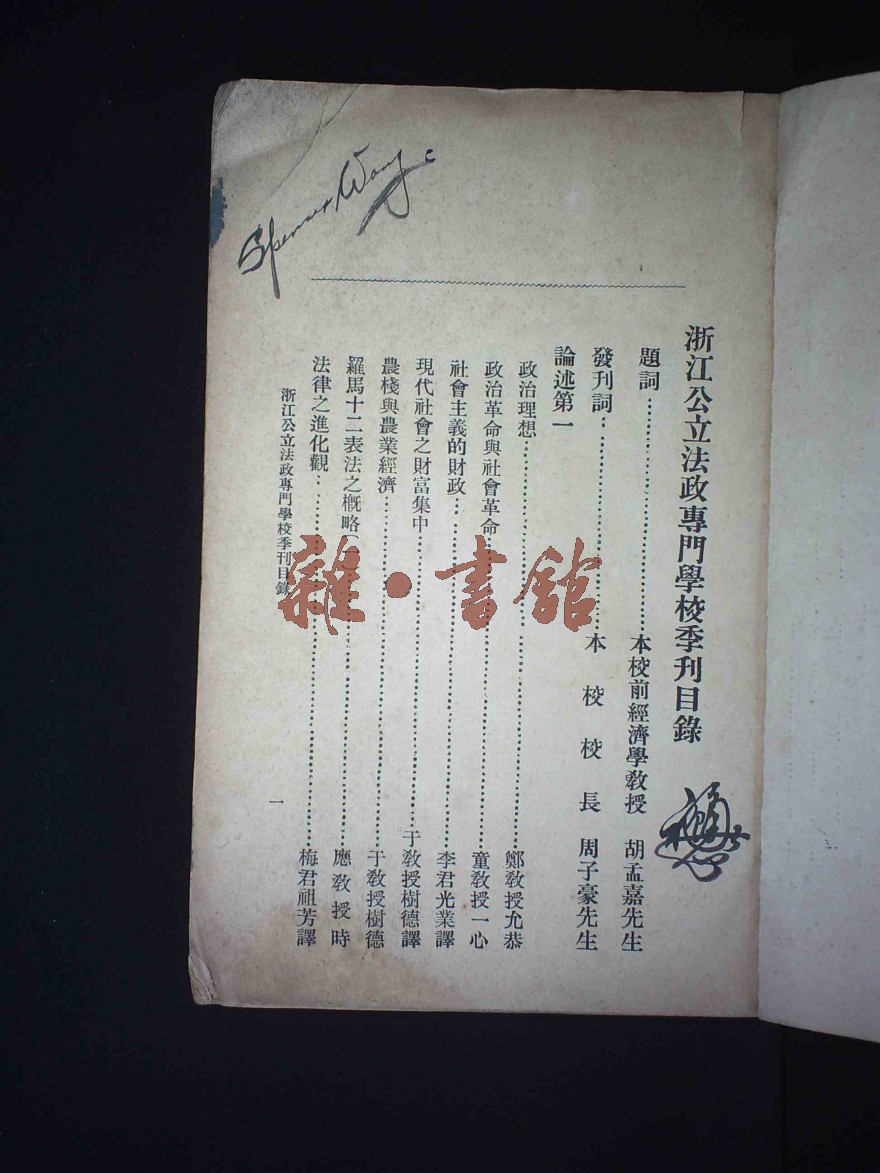 浙江公立法政專門學校季刊目錄
題詞……本校前經濟學教授　胡孟嘉先生
發刊詞……本校校長　周子豪先生
論述第一
政治理想……鄭教授允恭
政治革命與社會革命……童教授一心
社會主義的財政……李君光業譯
現代社會之財富集中……于教授樹德譯
農棧與農業經濟……于教授樹德
羅馬十二表法之概略……應教授時
法律之進化觀……梅君祖芳譯
浙江公立法政專門學校季刊目錄
一
Spencer Wang
雜·書館